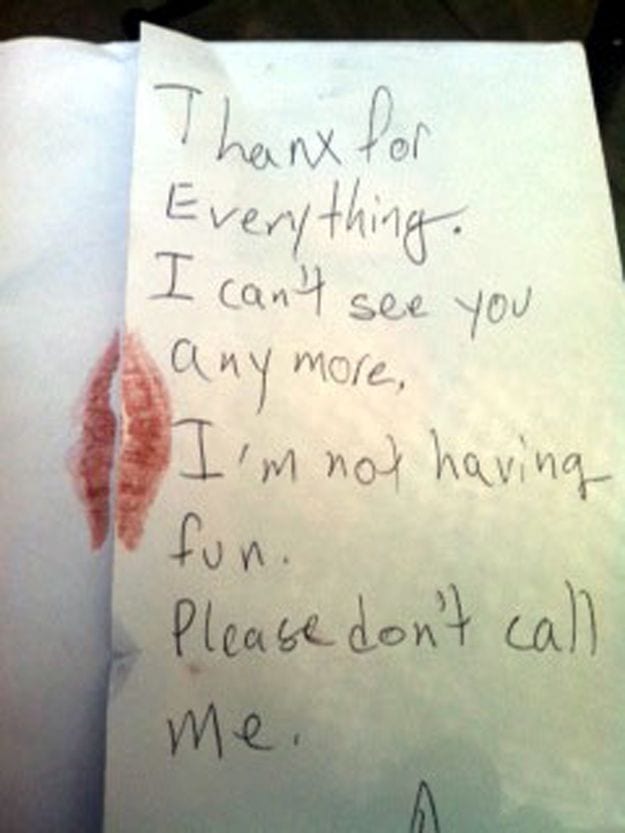 Thanx for
Everything.
I can't see you
any more.
I'm not having
fun.
Please don't call
me.